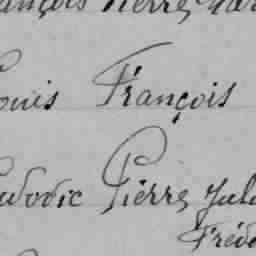 ançois Pierre
ouis François
udovic Pierre Jule
Fréd